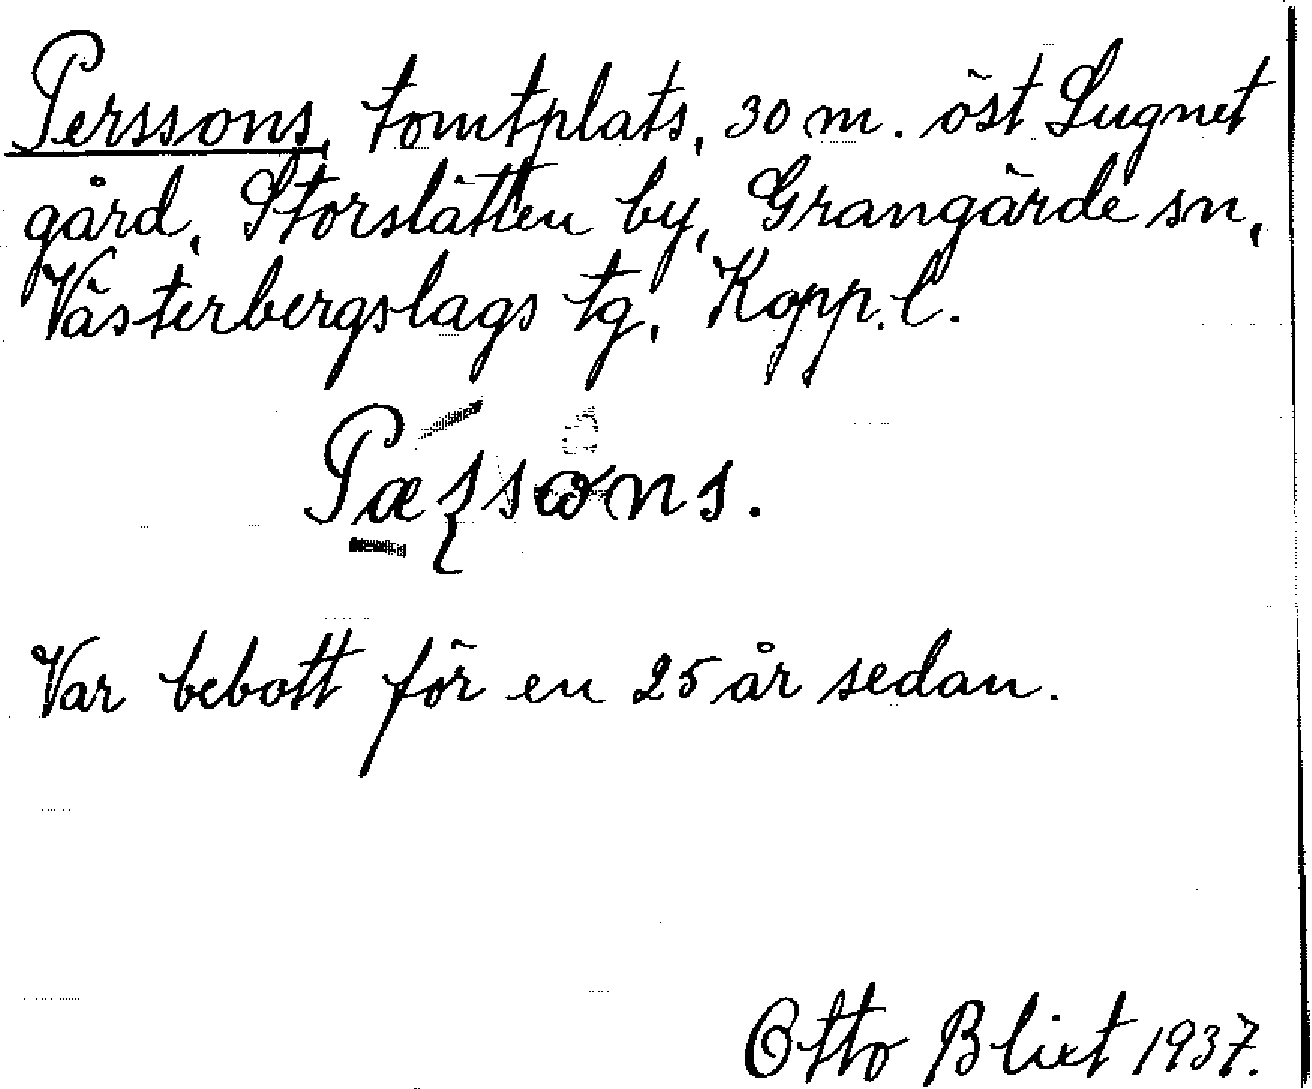 Perssons, tomtplats, 30 m. öst Lugnet
gård, Storslätten by, Grangärde sn,
Västerbergslags tg, Kopp. l.
Pæʂsωns.
Var bebott för en 25 år sedan.
Otto Blixt 1937.